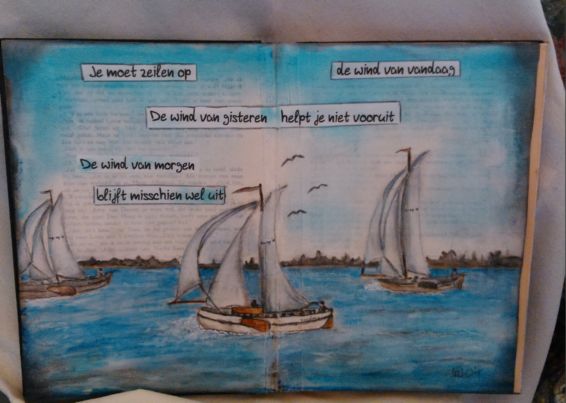 Je moet zeilen op de wind van vandaag
De wind van gisteren helpt je niet vooruit
De wind van morgen
blijft misschien wel uit